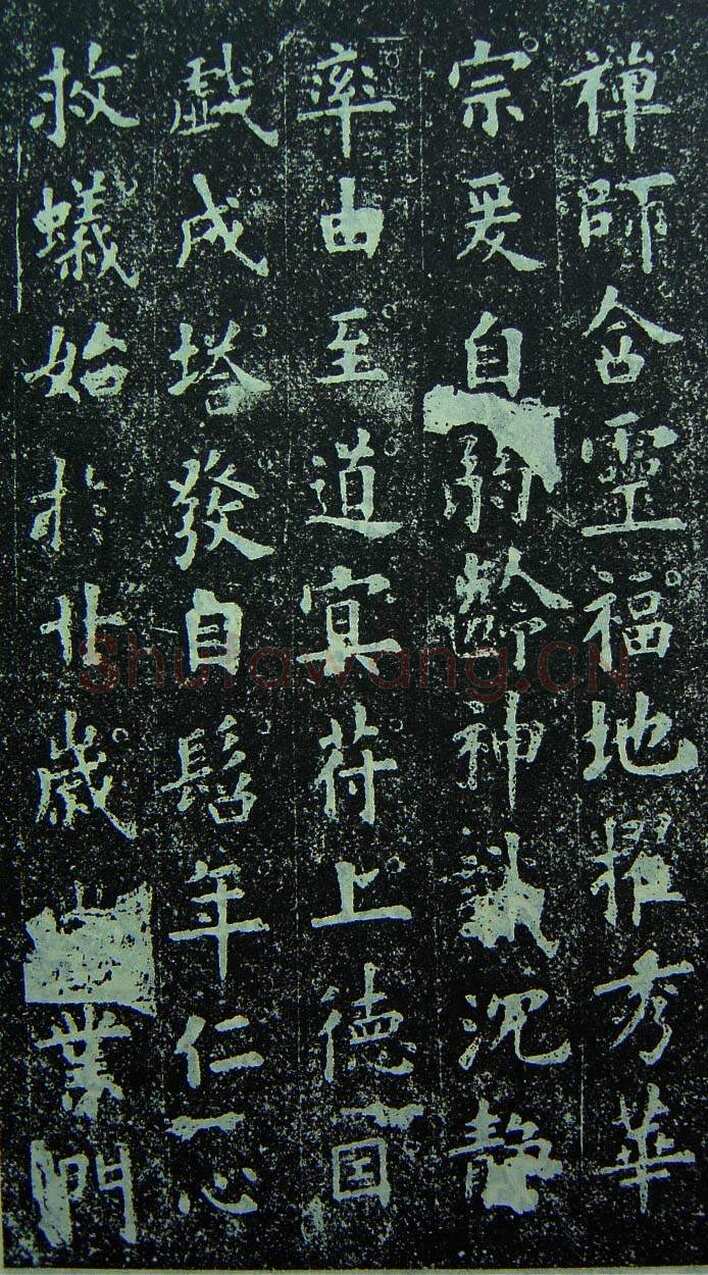 禪師含靈福地擢秀華
宗爰自弱齡神識沉靜
率由至道寘符上德因
戲成塔發自髫年仁心
救蟻始於丱歲業門
Shufawang.CN